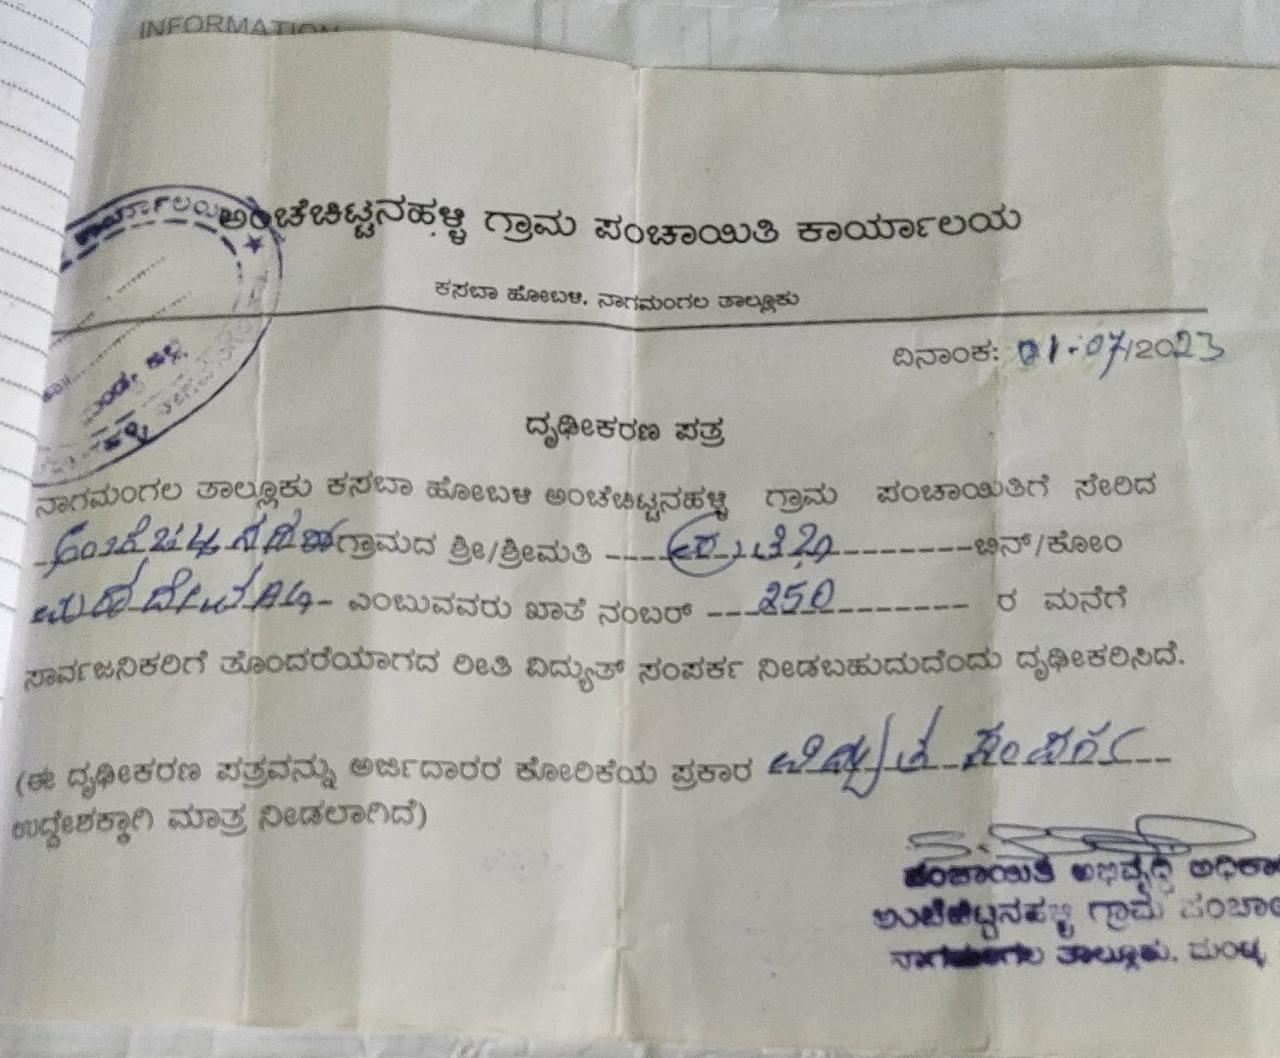 INFORMATION
ಅಂಚೆಚಿಟ್ಟನಹಳ್ಳಿ ಗ್ರಾಮ ಪಂಚಾಯಿತಿ ಕಾರ್ಯಾಲಯ
ಕಸಬಾ ಹೋಬಳಿ. ನಾಗಮಂಗಲ ತಾಲ್ಲೂಕು
ದಿನಾಂಕ: 01-07/2023
ದೃಢೀಕರಣ ಪತ್ರ
ನಾಗಮಂಗಲ ತಾಲ್ಲೂಕು ಕಸಬಾ ಹೋಬಳಿ ಅಂಚೆಚಿಟ್ಟನಹಳ್ಳಿ ಗ್ರಾಮ ಪಂಚಾಯಿತಿಗೆ ಸೇರಿದ
ಗ್ರಾಮದ ಶ್ರೀ/ಶ್ರೀಮತಿ ಬಿನ್/ಕೋಂ
ಎಂಬುವವರು ಖಾತೆ ನಂಬರ್ 250 ರ ಮನೆಗೆ
ಸಾರ್ವಜನಿಕರಿಗೆ ತೊಂದರೆಯಾಗದ ರೀತಿ ವಿದ್ಯುತ್ ಸಂಪರ್ಕ ನೀಡಬಹುದುದೆಂದು ದೃಢೀಕರಿಸಿದೆ.
(ಈ ದೃಢೀಕರಣ ಪತ್ರವನ್ನು ಅರ್ಜಿದಾರರ ಕೋರಿಕೆಯ ಪ್ರಕಾರ ವಿದ್ಯುತ ಸಂಪರ್ಕ
ಉದ್ದೇಶಕ್ಕಾಗಿ ಮಾತ್ರ ನೀಡಲಾಗಿದೆ)
ಪಂಚಾಯಿತಿ ಅಭಿವೃದ್ಧಿ ಅಧಿಕಾ
ಅಂಚೆಚಿಟ್ಟನಹಳ್ಳಿ ಗ್ರಾಮ ಪಂಚಾ
ನಾಗಮಂಗಲ ತಾಲ್ಲೂಕು. ಮಂಡ್ಯ